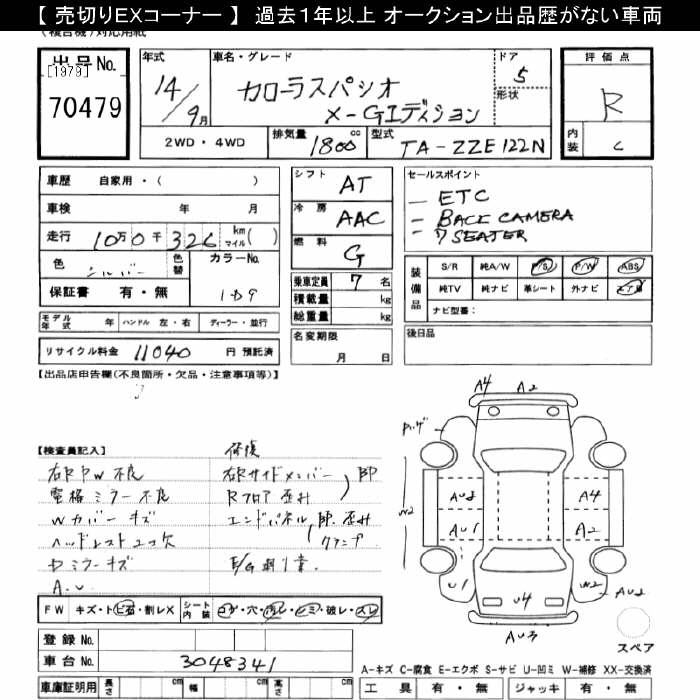 【 売切りEXコーナー 】 過去1年以上 オークション出品歴がない車両
(複合機)対応用紙
出品No.
[1979]
70479
年式
14/9月
車名・グレード
カローラスパシオ
X-Gエディション
ドア
5
形状
評価点
R
内装
C
2WD・4WD
排気量 1800 cc
型式 TA-ZZE122N
車歴 自家用・( )
車検 年 月
走行 10万0千326 km マイル( )
色 シルバー 色替 カラーNo.
保証書 有・無 1D9
モデル年式 年 ハンドル 左・右 ディーラー・並行
リサイクル料金 11040 円 預託済
シフト AT
冷房 AAC
燃料 G
乗車定員 7 名
積載量 kg
総重量 kg
名変期限
月 日
セールスポイント
- ETC
- BACK CAMERA
- 7 SEATER
装備品
S/R 純A/W P/S P/W ABS
純TV 純ナビ 革シート 外ナビ エアB
ナビ型番:
後日品
【出品店申告欄(不良箇所・欠品・注意事項等)】
【検査員記入】
右R PW 不良
電格ミラー不良
Wカバーキズ
ヘッドレスト2ヶ欠
セミラーキズ
A.U
修復
右Rサイドメンバー 即
Rフロア 歪み
エンドパネル 即.歪み
クランプ
E/G
FW キズ・トビ石・割レX
シート内装 コゲ・穴・汚レ・シミ・破レ・スレ
登録No.
車台No. 3048341
車庫証明用 長さ cm 幅 cm 高さ cm
A4 A2
W2
AU2 A4
AU1 A2
U1 U4 W2 AU2
AU3
スペア
A-キズ C-腐食 E-エクボ S-サビ U-凹ミ W-補修 XX-交換済
工具 有・無 ジャッキ 有・無